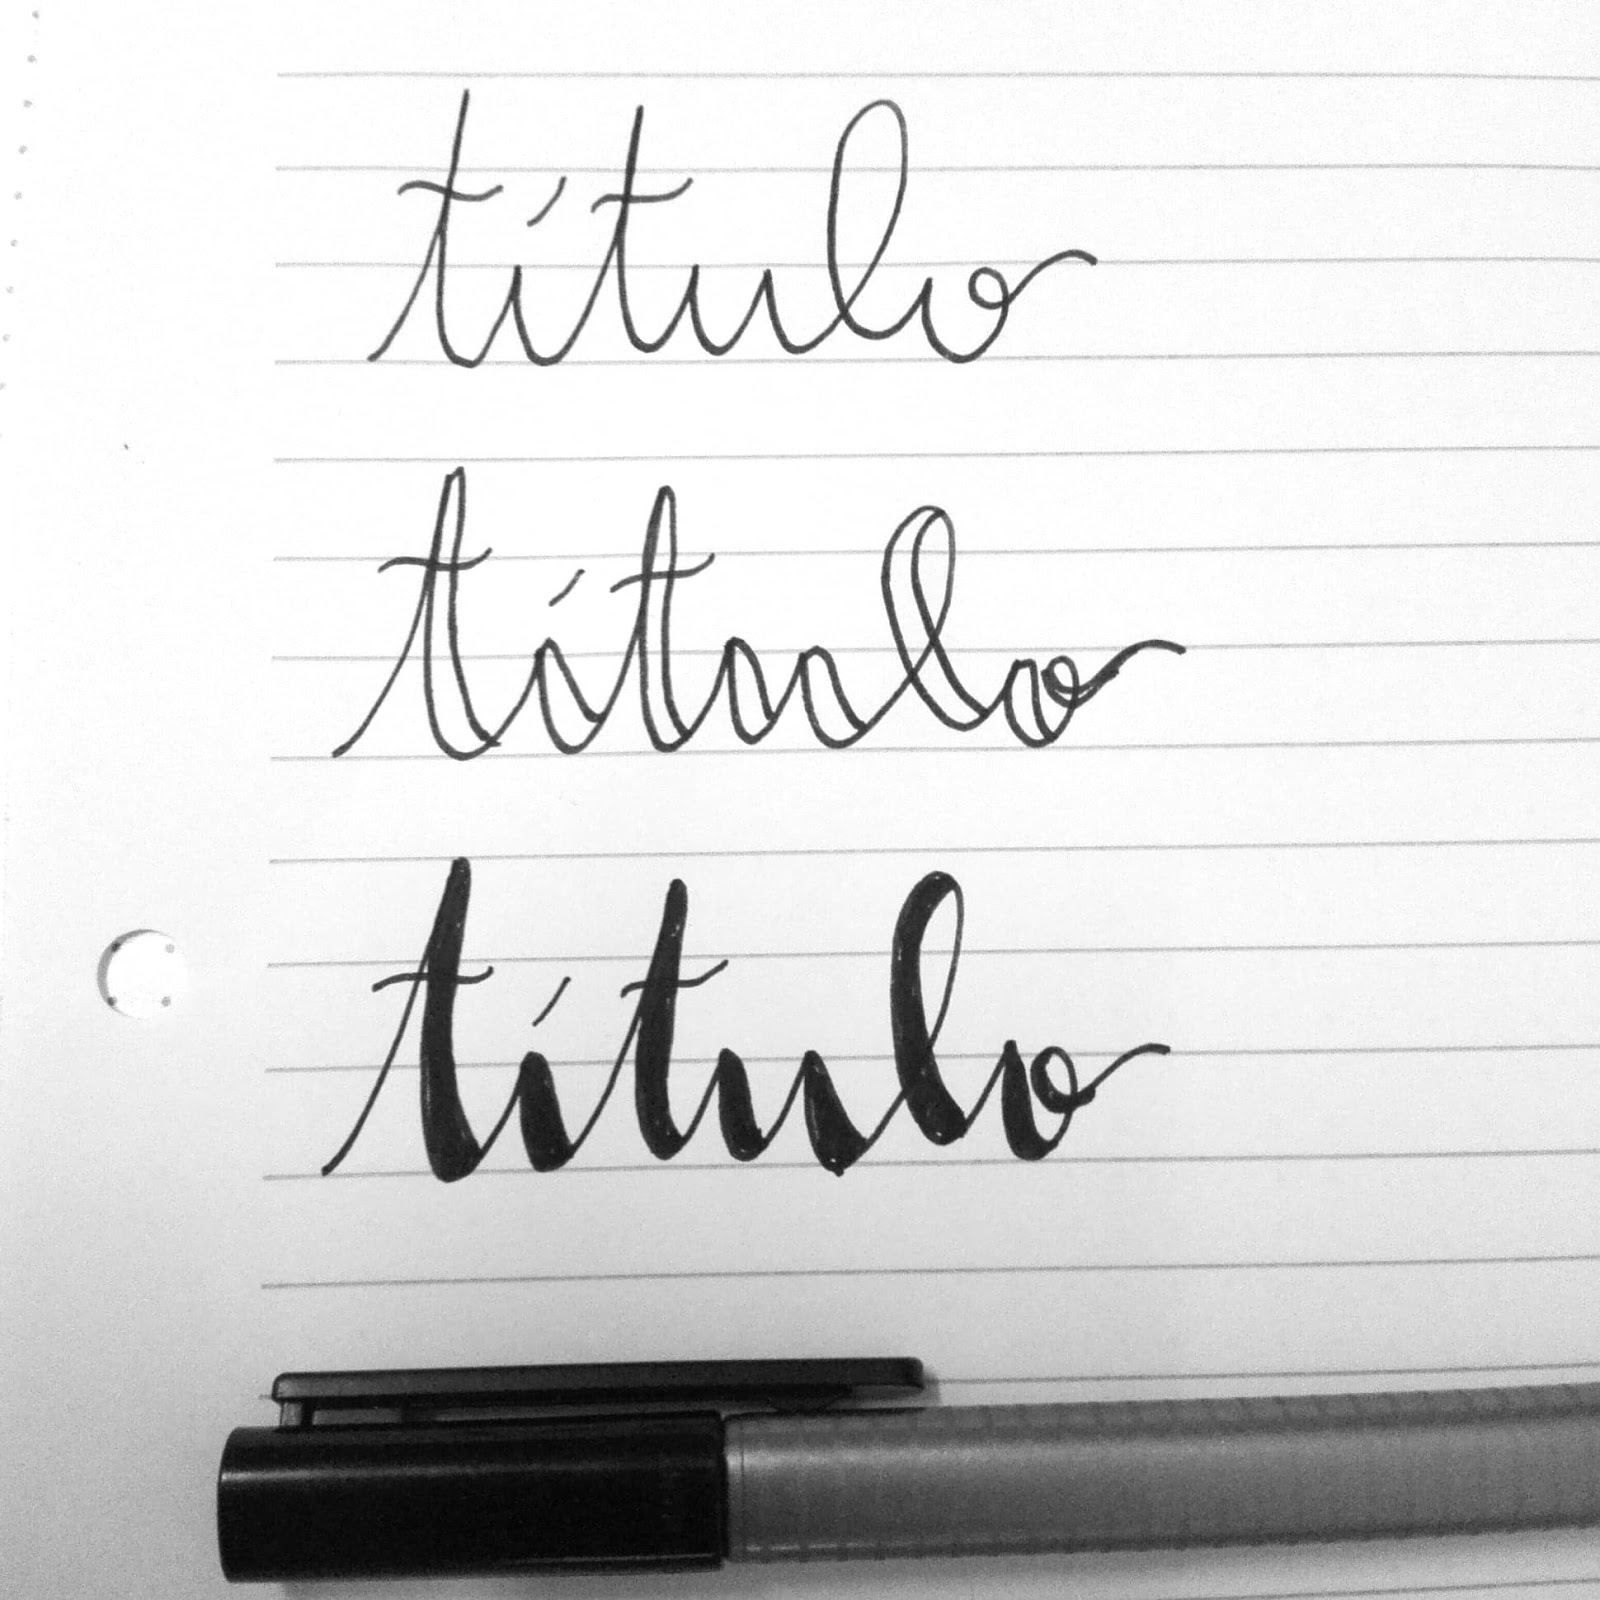 título
título
título